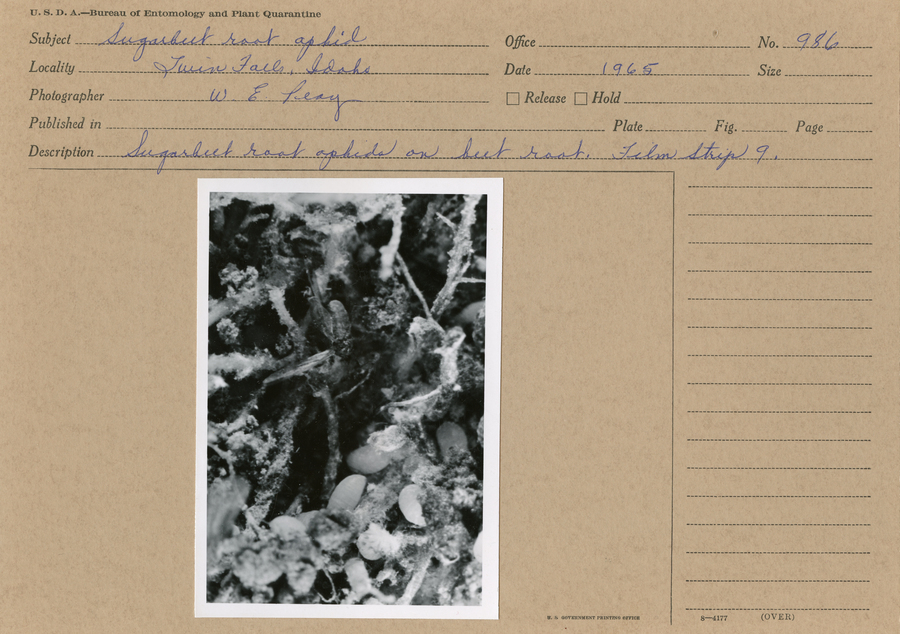 U. S. D. A.—Bureau of Entomology and Plant Quarantine
Subject Sugarbeet root aphid Office No. 986
Locality Twin Falls, Idaho Date 1965 Size
Photographer W E Peay Release Hold
Published in Plate Fig. Page
Description Sugarbeet root aphids on beet root. Film Strip 9.
U. S. GOVERNMENT PRINTING OFFICE 8—4177 (OVER)